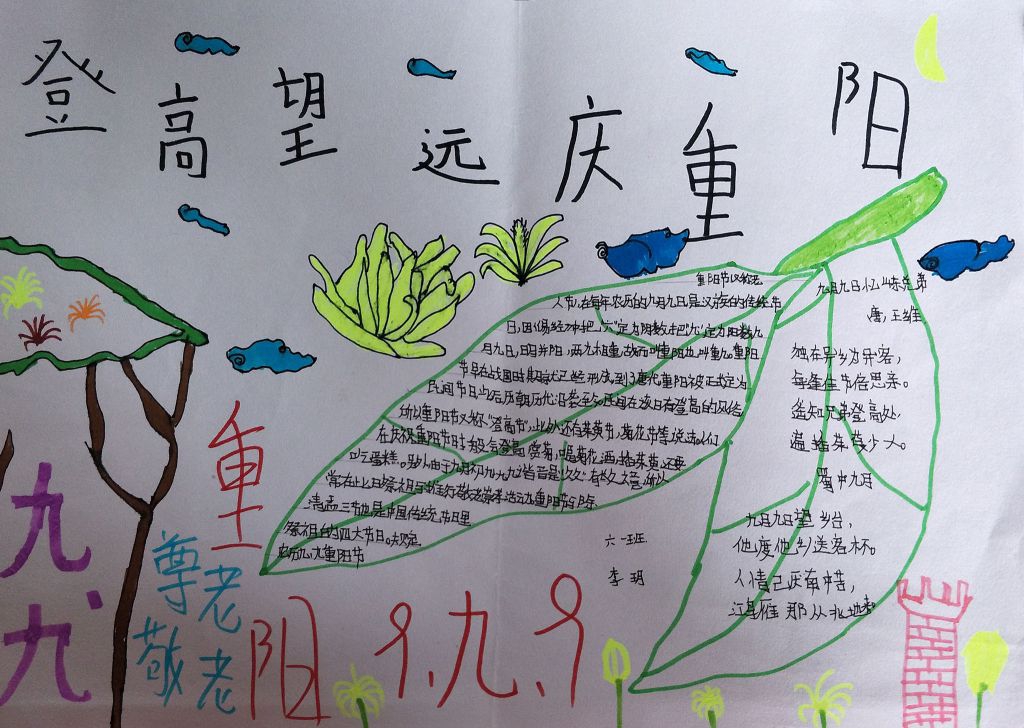 登高望远庆重阳
重阳节又称老
人节,在每年农历的九月九日是汉族的传统节
日,因《易经》中把“六”定为阴数,把“九”定为阳数,九
月九日,日月并阳,两九相重,故而叫重阳,也叫重九。重阳
节早在战国时期就已经形成,到了唐代重阳被正式定为
民间节日,此后历朝历代沿袭至今。民间在该日有登高的风俗,
所以重阳节又称“登高节”,此外还有茱萸节,菊花节等说法。人们
在庆祝重阳节时一般会登高,赏菊,喝菊花酒,插茱萸,还要
吃蛋糕。
常在此日祭祖与推行敬老
清
三节也是中国传统节日里
祭祖的四大节日。
农历九九重阳节
九月九日忆山东兄弟
唐,王维
独在异乡为异客,
每逢佳节倍思亲。
遥知兄弟登高处,
遍插茱萸少一人。
蜀中九日
九月九日望乡台,
他席他乡送客杯。
人情已厌南中苦,
鸿雁那从北地来
六一班
李玥
九、九
重阳
尊老
敬老
九.九.九